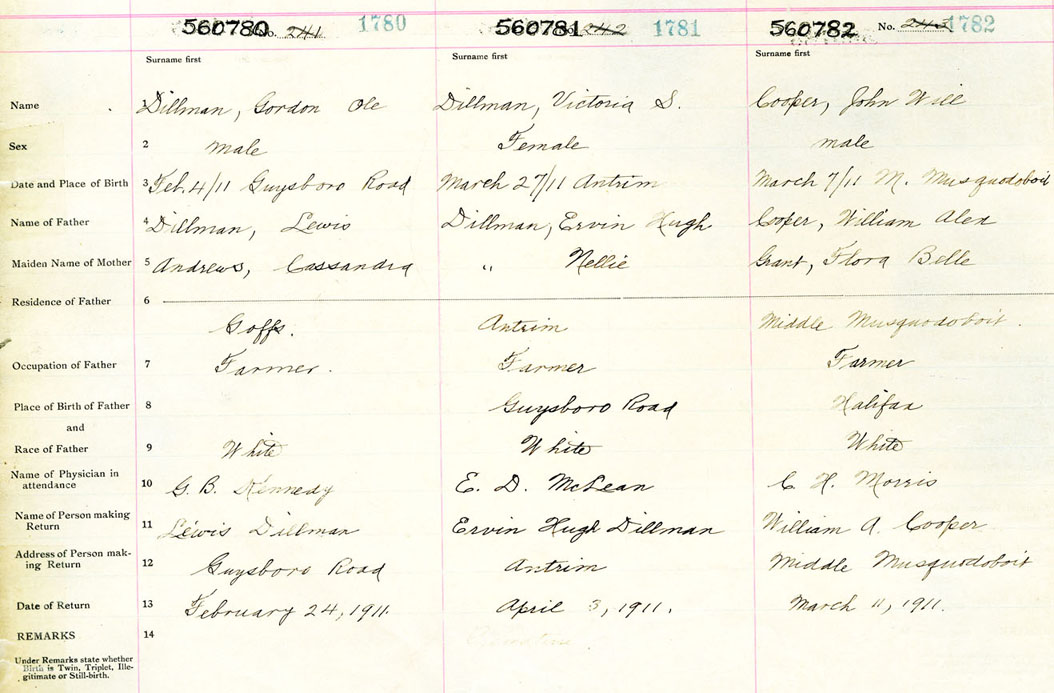 560780 No. 241 1780 560781 No. 242 1781 560782 No. 243 1782
Surname first Surname first Surname first
Name Dillman, Gordon Ole Dillman, Victoria S. Cooper, John Will
Sex 2 male Female male
Date and Place of Birth 3 Feb. 4/11 Guysboro Road March 27/11 Antrim March 7/11 M. Musquodoboit
Name of Father 4 Dillman, Lewis Dillman, Ervin Hugh Cooper, William Alex
Maiden Name of Mother 5 Andrews, Cassandra " Nellie Grant, Flora Belle
Residence of Father 6
Goffs. Antrim Middle Musquodoboit.
Occupation of Father 7 Farmer. Farmer Farmer
Place of Birth of Father 8 Guysboro Road Halifax
and
Race of Father 9 White White White
Name of Physician in
attendance 10 G. B. Kennedy E. D. McLean C. H. Morris
Name of Person making
Return 11 Lewis Dillman Ervin Hugh Dillman William A. Cooper
Address of Person mak-
ing Return 12 Guysboro Road Antrim Middle Musquodoboit
Date of Return 13 February 24, 1911. April 3, 1911. March 11, 1911.
REMARKS 14
Under Remarks state whether
Birth is Twin, Triplet, Ille-
gitimate or Still-birth.